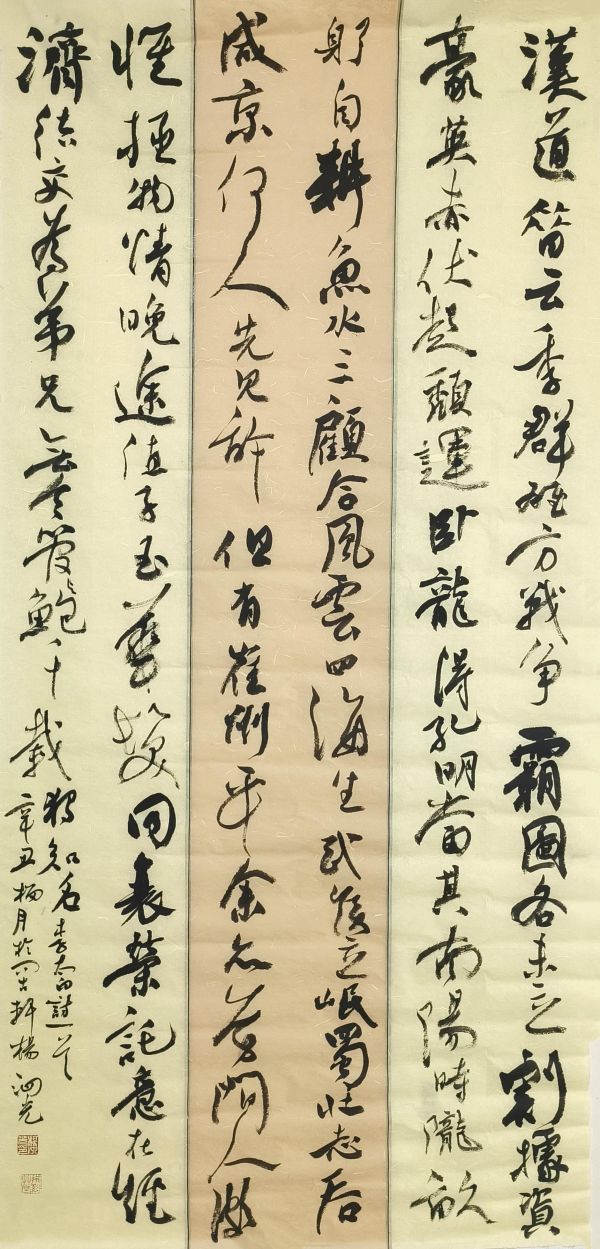 漢道昔云季群雄方戰争霸圖各未立割據資
豪英赤伏起頹運臥龍得孔明當其南陽時隴畝
躬自耕魚水三顧合風雲四海生武侯立岷蜀壯志吞
咸京何人先見許但有崔州平余亦草間人頗
懷拯物情晚途值子玉華髮同衰榮託意在經
濟结交為弟兄無令管與鮑千載獨知名李太白詩一首
辛丑月於軒楊泗光